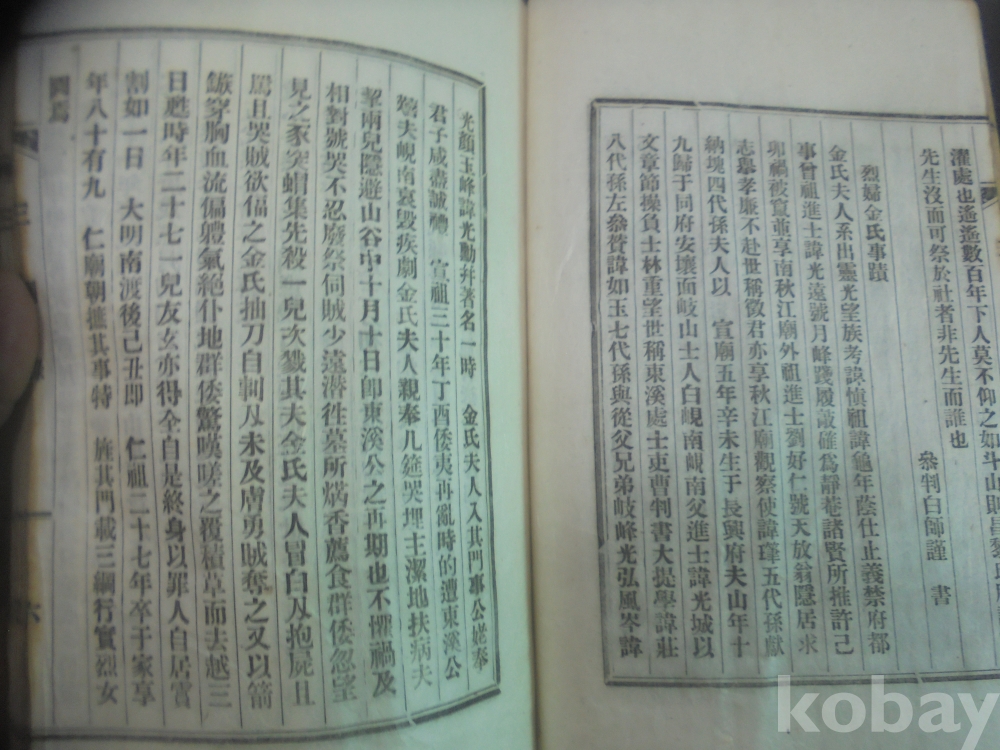 濯處也遙遙數百年下人莫不仰之如斗山
先生沒而可祭於社者非先生而誰也
叅判白師謹 書
烈婦金氏事蹟
金氏夫人系出靈光望族考諱愼祖諱龜年蔭仕止義禁府都
事曾祖進士諱光遠號月峰踐履敲確爲靜菴諸賢所推許己
卯禍被竄並享南秋江廟外祖進士劉好仁號天放翁隱居求
志擧孝廉不赴世稱徵君亦享秋江廟觀察使諱瑋五代孫獻
納塊四代孫夫人以 宣廟五年辛未生于長興府夫山年十
九歸于同府安壤面岐山士人白峴南峴南父進士諱光城以
文章節操負士林重望世稱東溪處士吏曹判書大提學諱莊
八代孫左叅贊諱如玉七代孫與從父兄弟岐峰光弘風岑諱
光顔玉峰諱光勳幷著名一時 金氏夫人入其門事公姥奉
君子咸盡誠禮 宣祖三十年丁酉倭夷再亂時的遭東溪公
喪夫峴南哀毁疾劇金氏夫人親奉几筵哭埋主潔地扶病夫
挈兩兒隱避山谷中十月十日卽東溪公之再期也不懼禍及
相對號哭不忍廢祭伺賊少遠潛徃墓所焫香薦食群倭忽望
見之家突蝟集先殺一兒次戮其夫金氏夫人冒白刄抱屍且
罵且哭賊欲偪之金氏抽刀自刎刄未及膚勇賊奪之又以箭
鏃穿胸血流偏軆氣絕仆地群倭驚嘆嗟之覆積草而去越三
日甦時年二十七一兒友玄亦得全自是終身以罪人自居
割如一日 大明南渡後己丑卽 仁祖二十七年卒于家享
年八十有九 仁廟朝摭其事特 旌其門載三綱行實烈女
圖焉
kobay